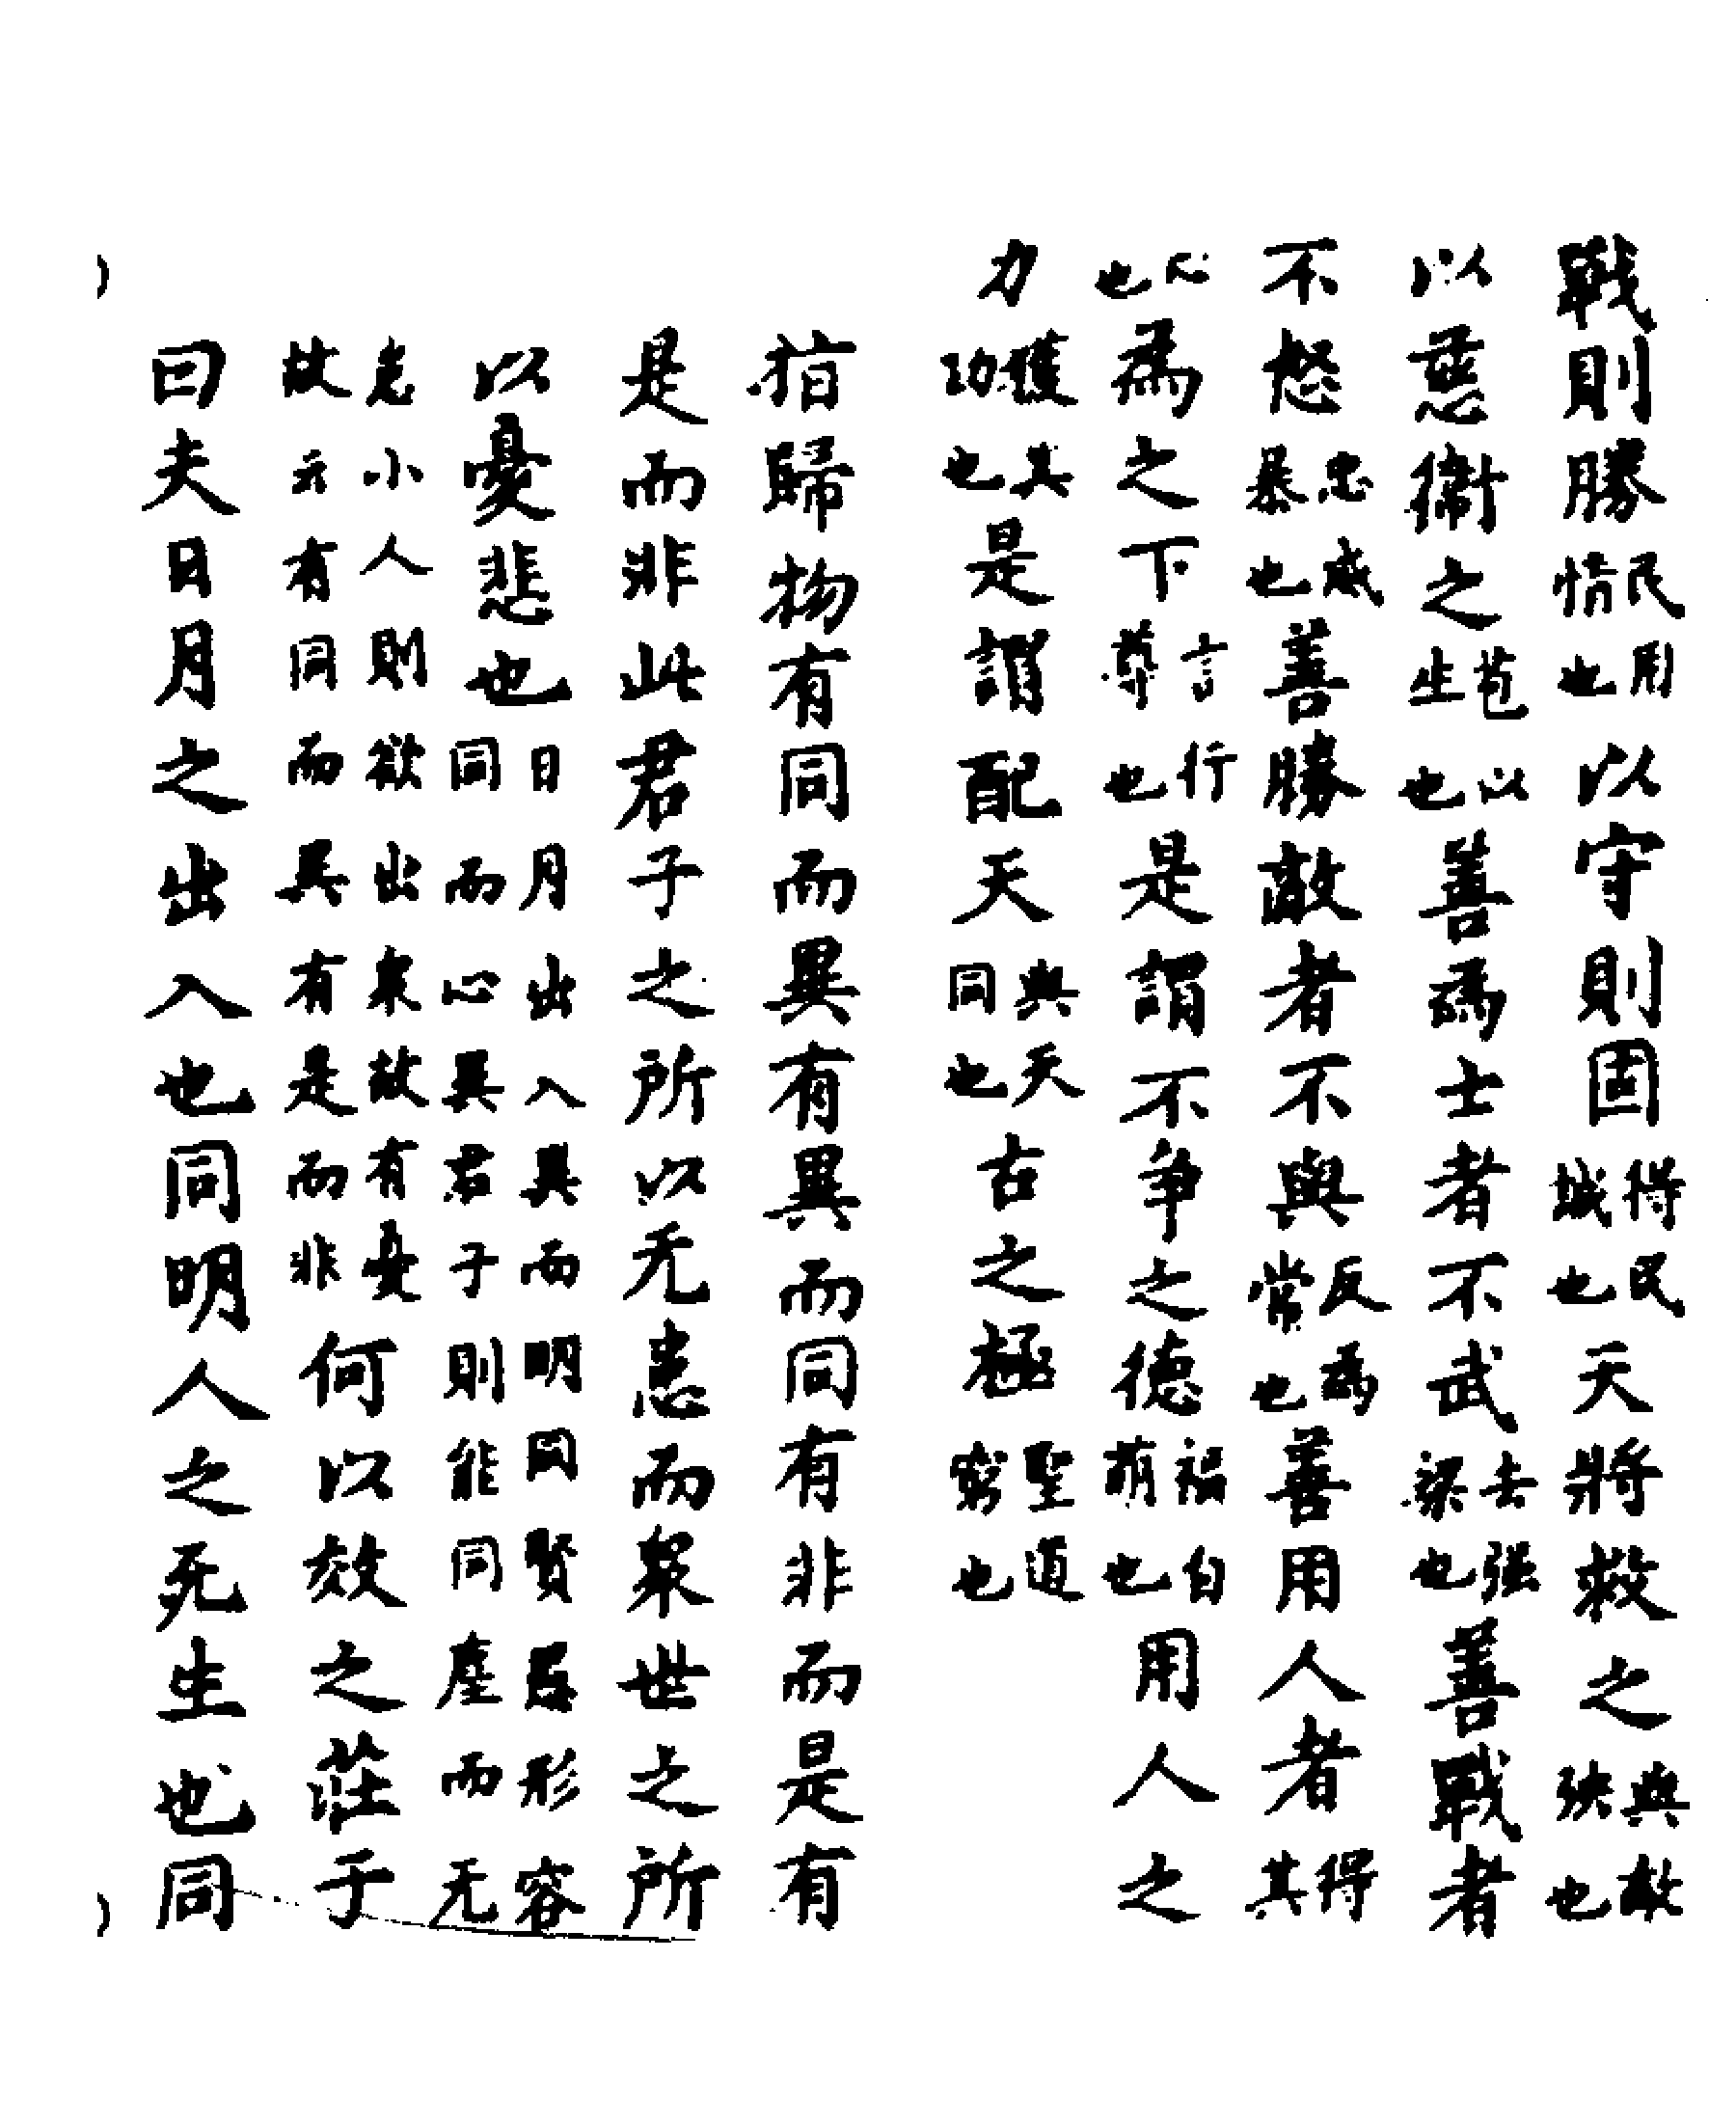 戰則勝民用情也以守則固得民城也天將救之與敵殃也
以慈衞之苞以生也善爲士者不武去强梁也善戰者
不怒忠感暴也善勝敵者不與反爲常也善用人者得其
心也爲之下言行尊也是謂不爭之德禍自萌也用人之
力獲其功也是謂配天與天同也古之極聖道窮也
指歸物有同而異有異而同有非而是有
是而非此君子之所以无患而衆世之所
以憂悲也日月出入異而明同賢君形容同而心異君子則能同塵而无
危小人則欲出衆故有憂故云有同而異有是而非何以效之莊子
曰夫日月之出入也同明人之死生也同